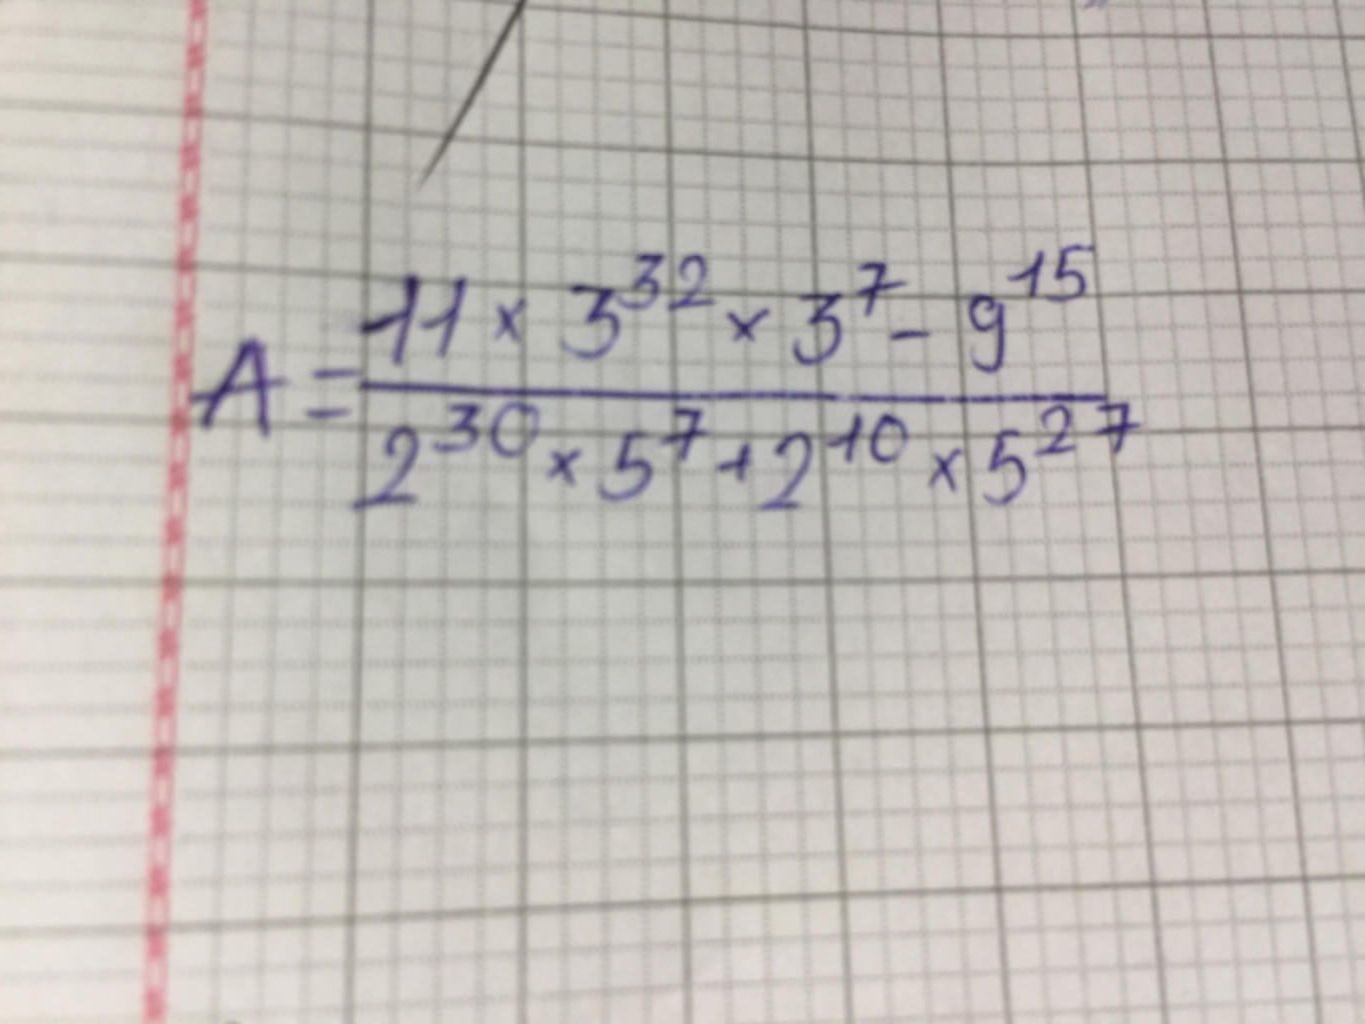 A = \frac{11 \times 3^{32} \times 3^{7} - 9^{15}}{2^{30} \times 5^{7} + 2^{10} \times 5^{27}}